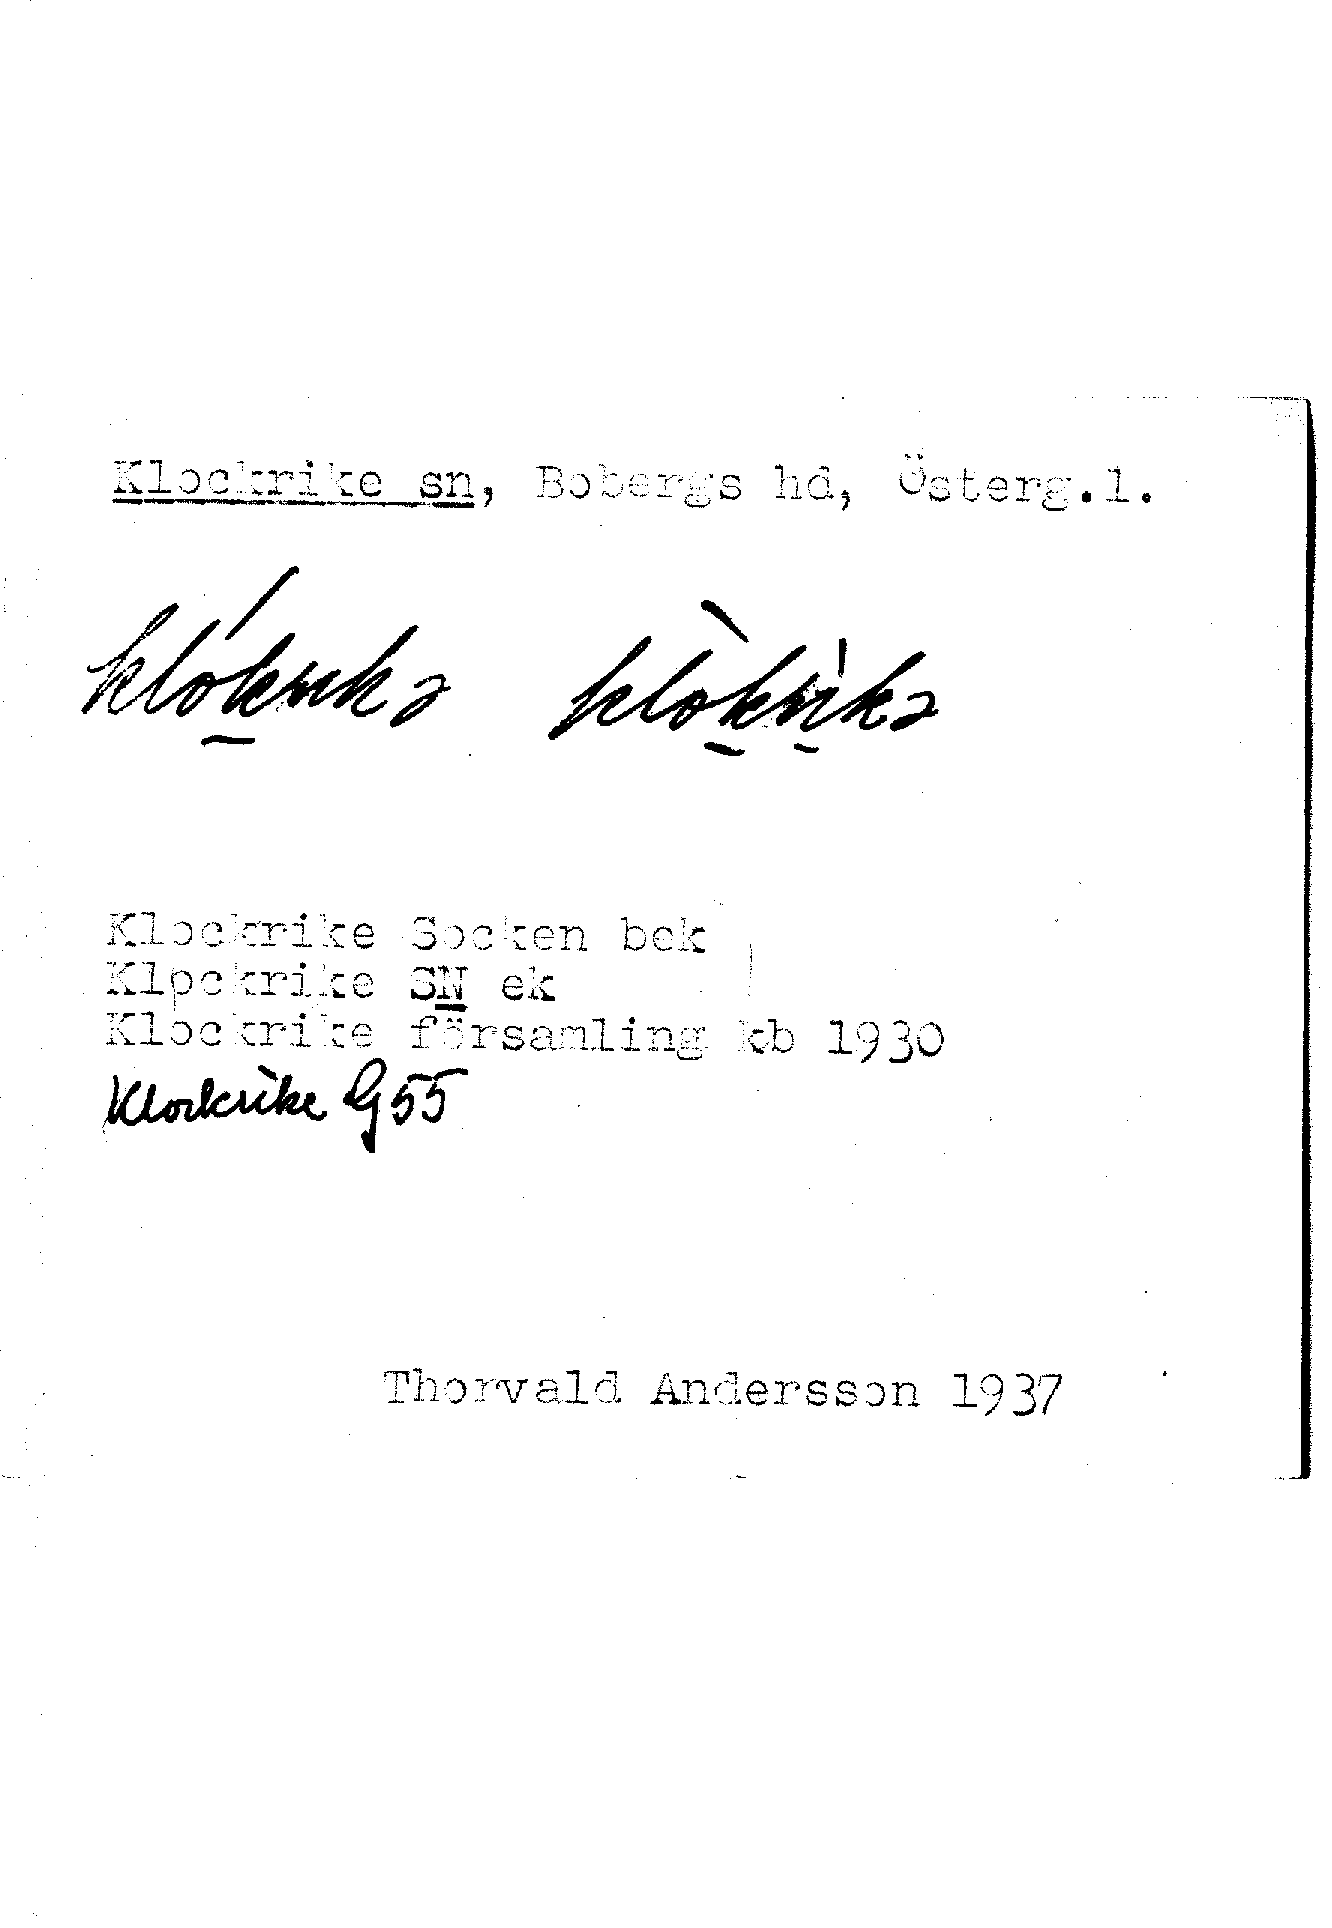 Klockrike sn, Bobergs hd, Österg.l.
klókrikə klòkrìkə
Klockrike Socken bek
Klockrike SN ek
Klockrike församling kb 1930
Klockrike G 55
Thorvald Andersson 1937